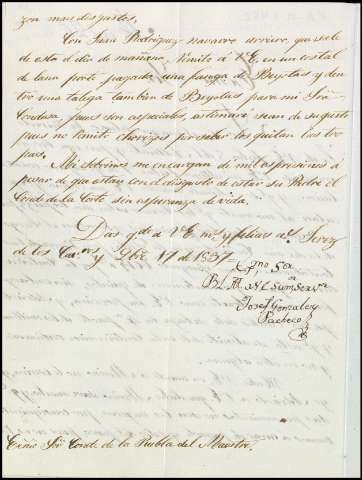 zon mas disgustos,
Con Juan Rodriguez navarro arriero, que sale
de esta el dia de mañana, remito á V.E, en un costal
de lana porte pagado una fanega de Beyotas, y den-
tro una talega tambien de Beyotas para mi Señ.
Condesa, pues son especiales, estimaré sean de su gusto
pues no remito chorizos por saber los quitan las tro
pas.
Mis sobrinos me encargan dé mil espresiones á
pesar de que estan con el disgusto de estar su Padre el
Conde de la Corte sin esperanza de vida.
Dios gde á V.E ms y felices as. Jerez
de los Cavos y 9bre 17 de 1837.
Exmo Sor
B. L. M. de V.E su m. Servr
Josef Gonzalez
Pacheco
Exmo Señ Conde de la Puebla del Maestre.